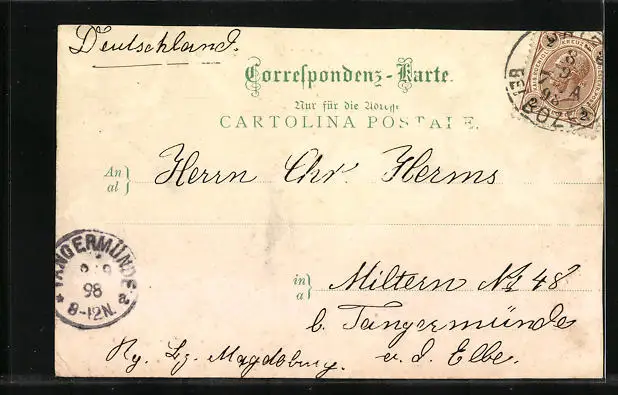 Deutschland.
Correspondenz-Karte.
Nur für die
CARTOLINA POSTALE.
An
al
Herrn Chr. Herms
in
a
Miltern No 48
b. Tangermünde
a. d. Elbe.
Rg. Bz. Magdeburg.
TANGERMÜNDE
98
8-12N.
* a
GRIES
BEI BOZEN
8 9
98
2 2